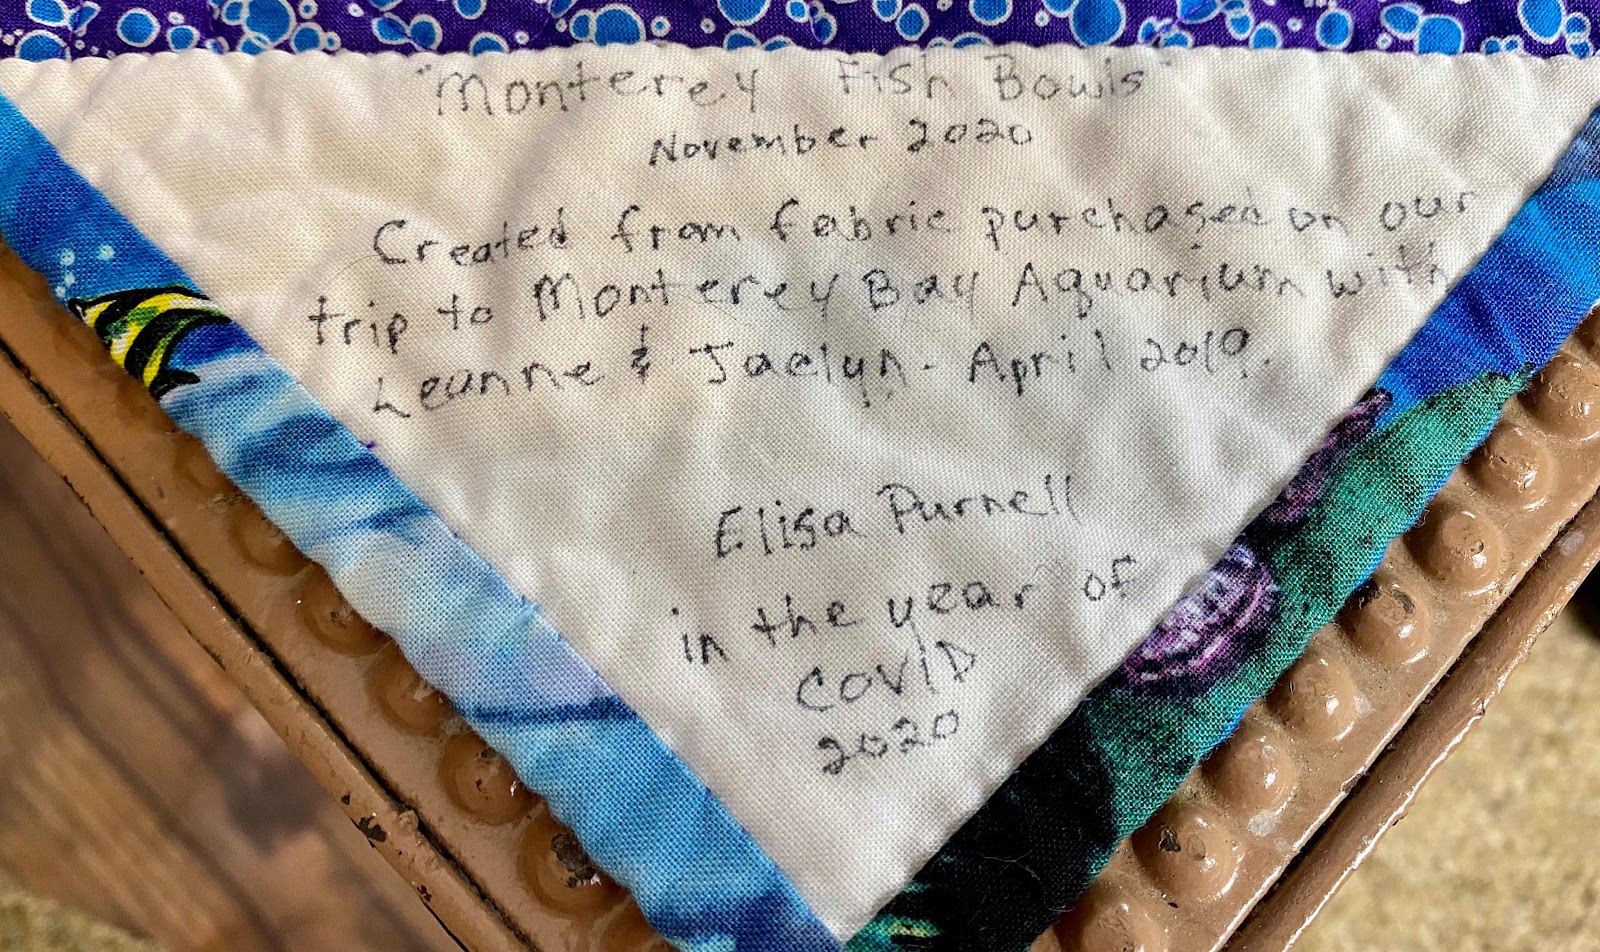 "Monterey Fish Bowls"
November 2020
Created from fabric purchased on our
trip to Monterey Bay Aquarium with
Leanne & Jaclyn. April 2019.
Elisa Purnell
in the year of
COVID
2020